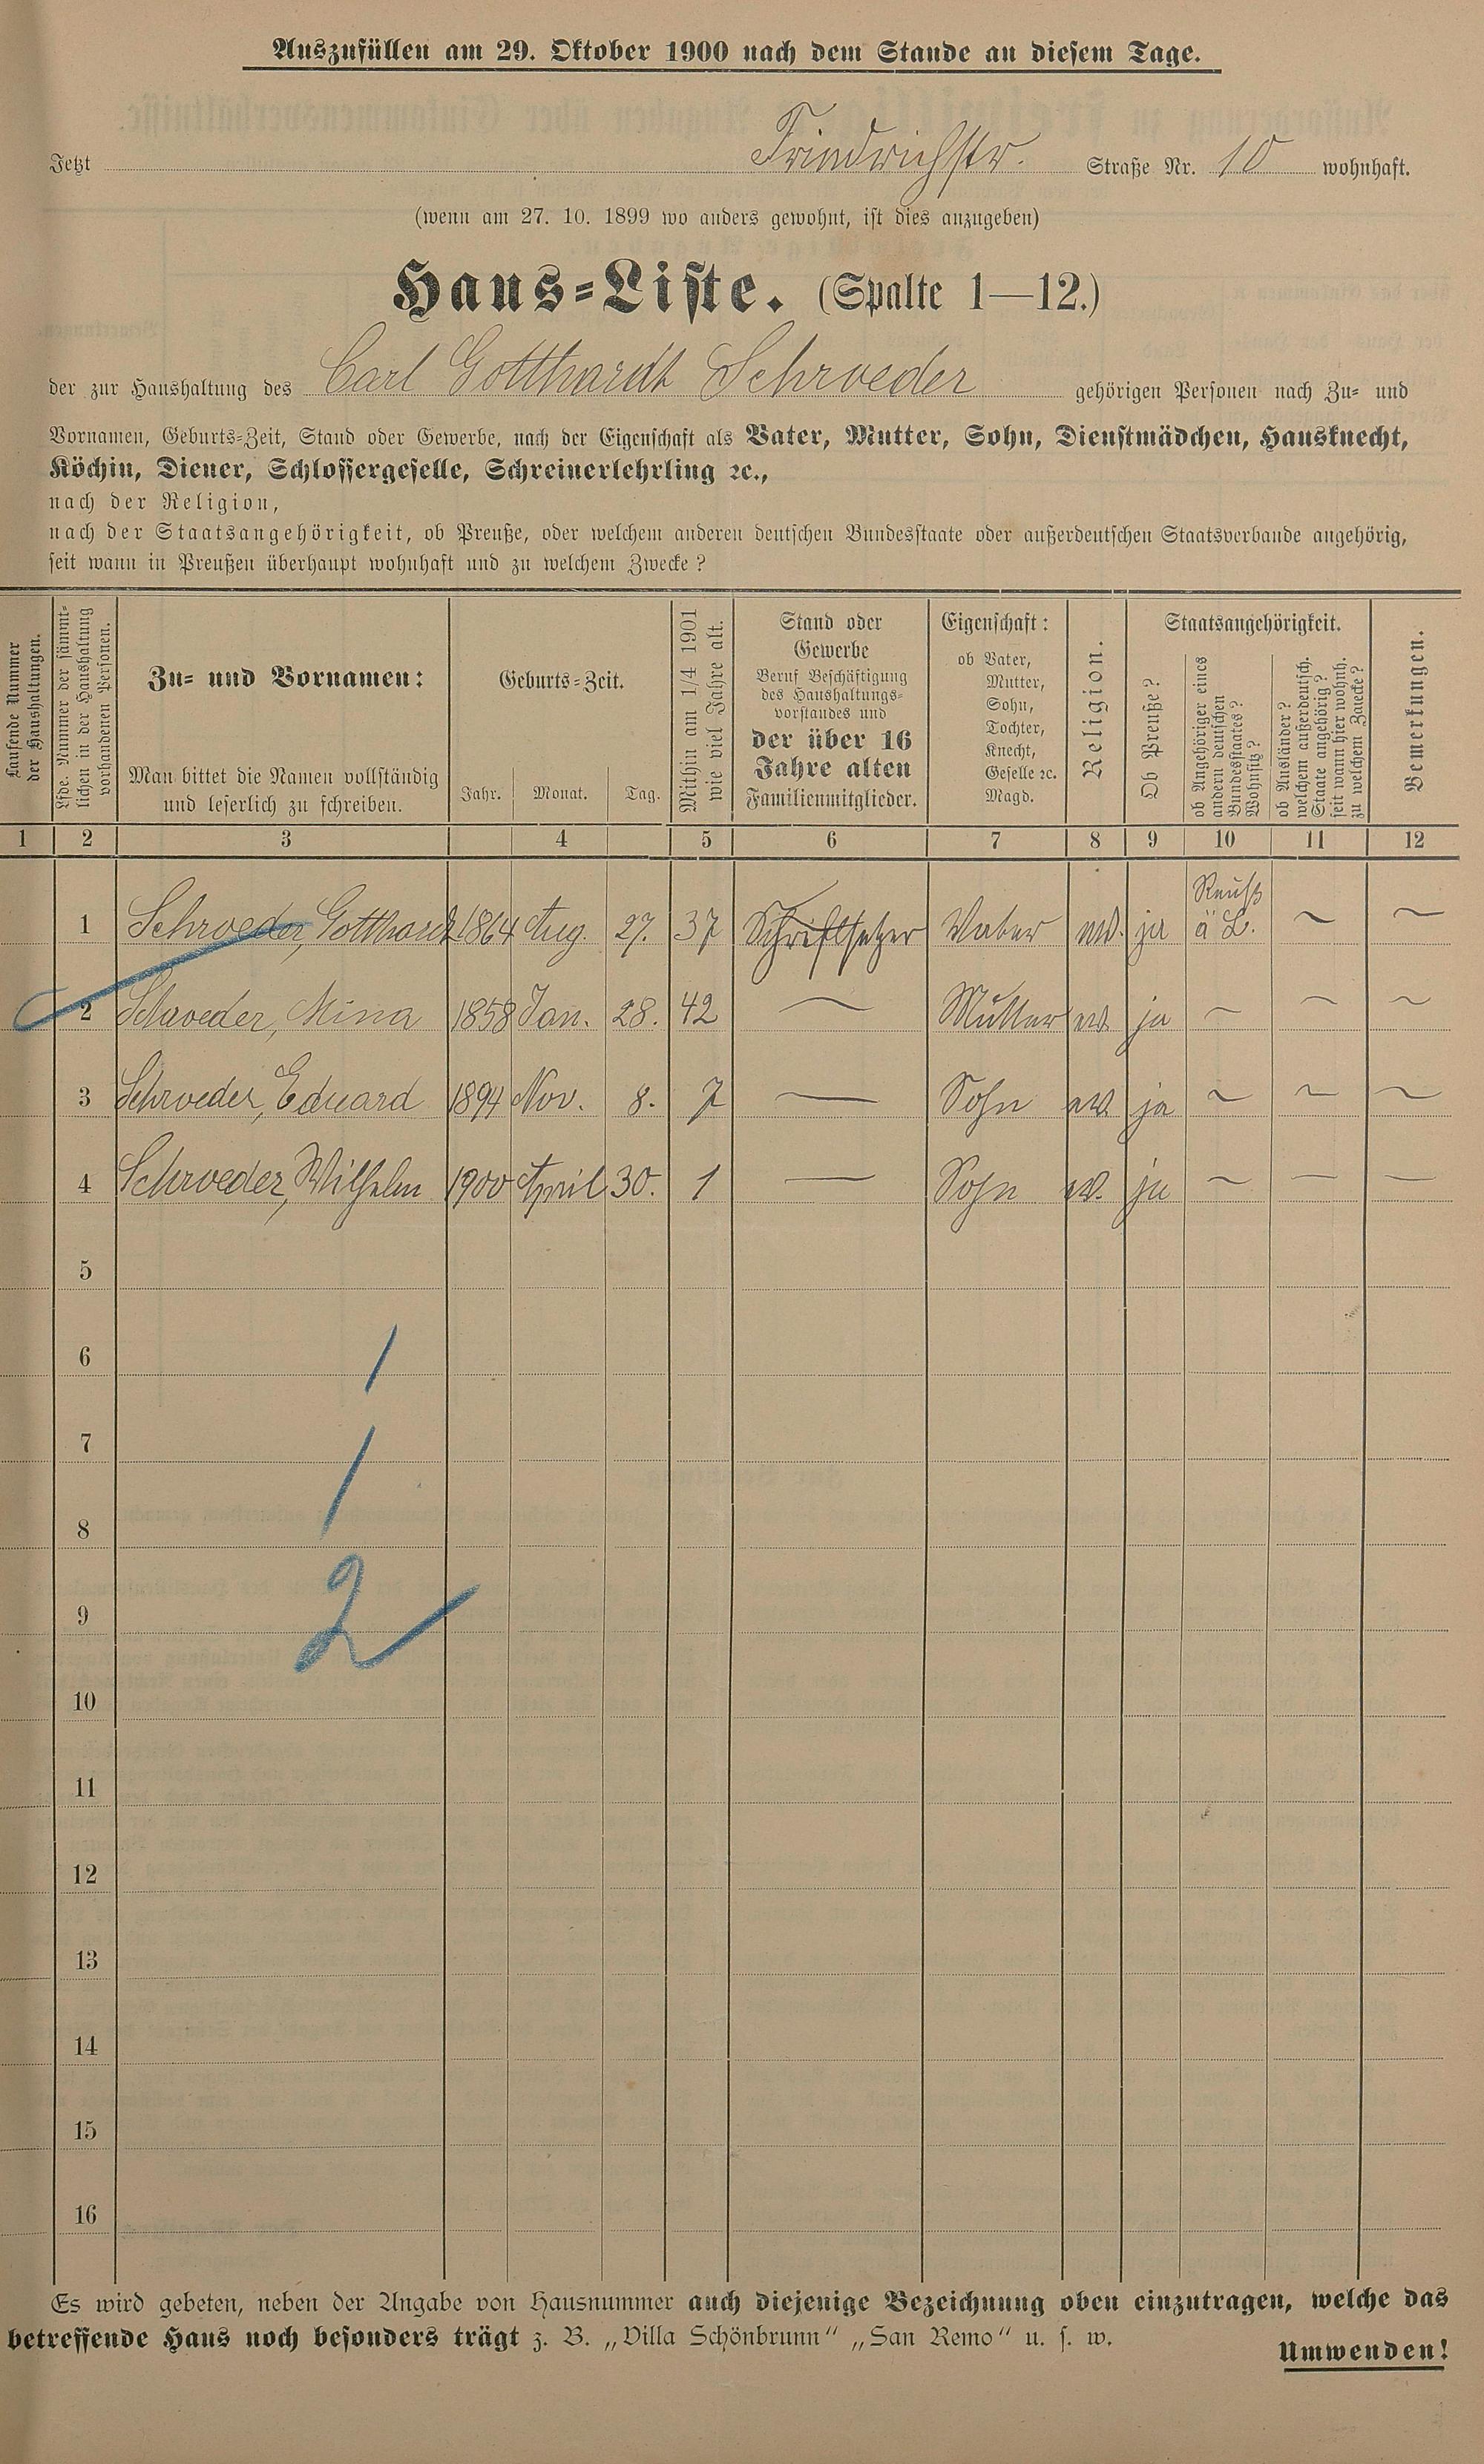 Auszufüllen am 29. Oktober 1900 nach dem Stande an diesem Tage.
Jetzt Friedrichstr. Straße Nr. 10 wohnhaft.
(wenn am 27. 10. 1899 wo anders gewohnt, ist dies anzugeben)
Haus-Liste. (Spalte 1—12.)
der zur Haushaltung des Carl Gotthardt Schroeder gehörigen Personen nach Zu- und
Vornamen, Geburts-Zeit, Stand oder Gewerbe, nach der Eigenschaft als Vater, Mutter, Sohn, Dienstmädchen, Hausknecht,
Köchin, Diener, Schlossergeselle, Schreinerlehrling ꝛc.,
nach der Religion,
nach der Staatsangehörigkeit, ob Preuße, oder welchem anderen deutschen Bundesstaate oder außerdeutschen Staatsverbande angehörig,
seit wann in Preußen überhaupt wohnhaft und zu welchem Zwecke?
Laufende Nummer
der Haushaltungen.
Lfde. Nummer der sämmt-
lichen in der Haushaltung
vorhandenen Personen.
Zu- und Vornamen:
Man bittet die Namen vollständig
und leserlich zu schreiben.
Geburts-Zeit.
Jahr. Monat. Tag.
Mithin am 1/4 1901
wie viel Jahre alt.
Stand oder
Gewerbe
Beruf Beschäftigung
des Haushaltungs-
vorstandes und
der über 16
Jahre alten
Familienmitglieder.
Eigenschaft:
ob Vater,
Mutter,
Sohn,
Tochter,
Knecht,
Geselle ꝛc.
Magd.
Religion.
Staatsangehörigkeit.
Ob Preuße?
ob Angehöriger eines
andern deutschen
Bundesstaates?
Wohnsitz?
ob Ausländer?
welchem außerdeutsch.
Staate angehörig?
seit wann hier wohnh.
zu welchem Zwecke?
Bemerkungen.
1 2 3 4 5 6 7 8 9 10 11 12
Reuß
1 Schroeder, Gotthardt 1864 Aug. 27. 37 Schriftsetzer Vater ev. ja ä L. ~ ~
2 Schroeder, Mina 1858 Jan. 28. 42 — Mutter ev. ja ~ ~ ~
3 Schroeder, Eduard 1894 Nov. 8. 7 — Sohn ev. ja ~ ~ ~
4 Schroeder, Wilhelm 1900 April 30. 1 — Sohn ev. ja ~ — —
5
6
1
7
1
8
2
9
10
11
12
13
14
15
16
Es wird gebeten, neben der Angabe von Hausnummer auch diejenige Bezeichnung oben einzutragen, welche das
betreffende Haus noch besonders trägt z. B. „Villa Schönbrunn“ „San Remo“ u. s. w.
Umwenden!